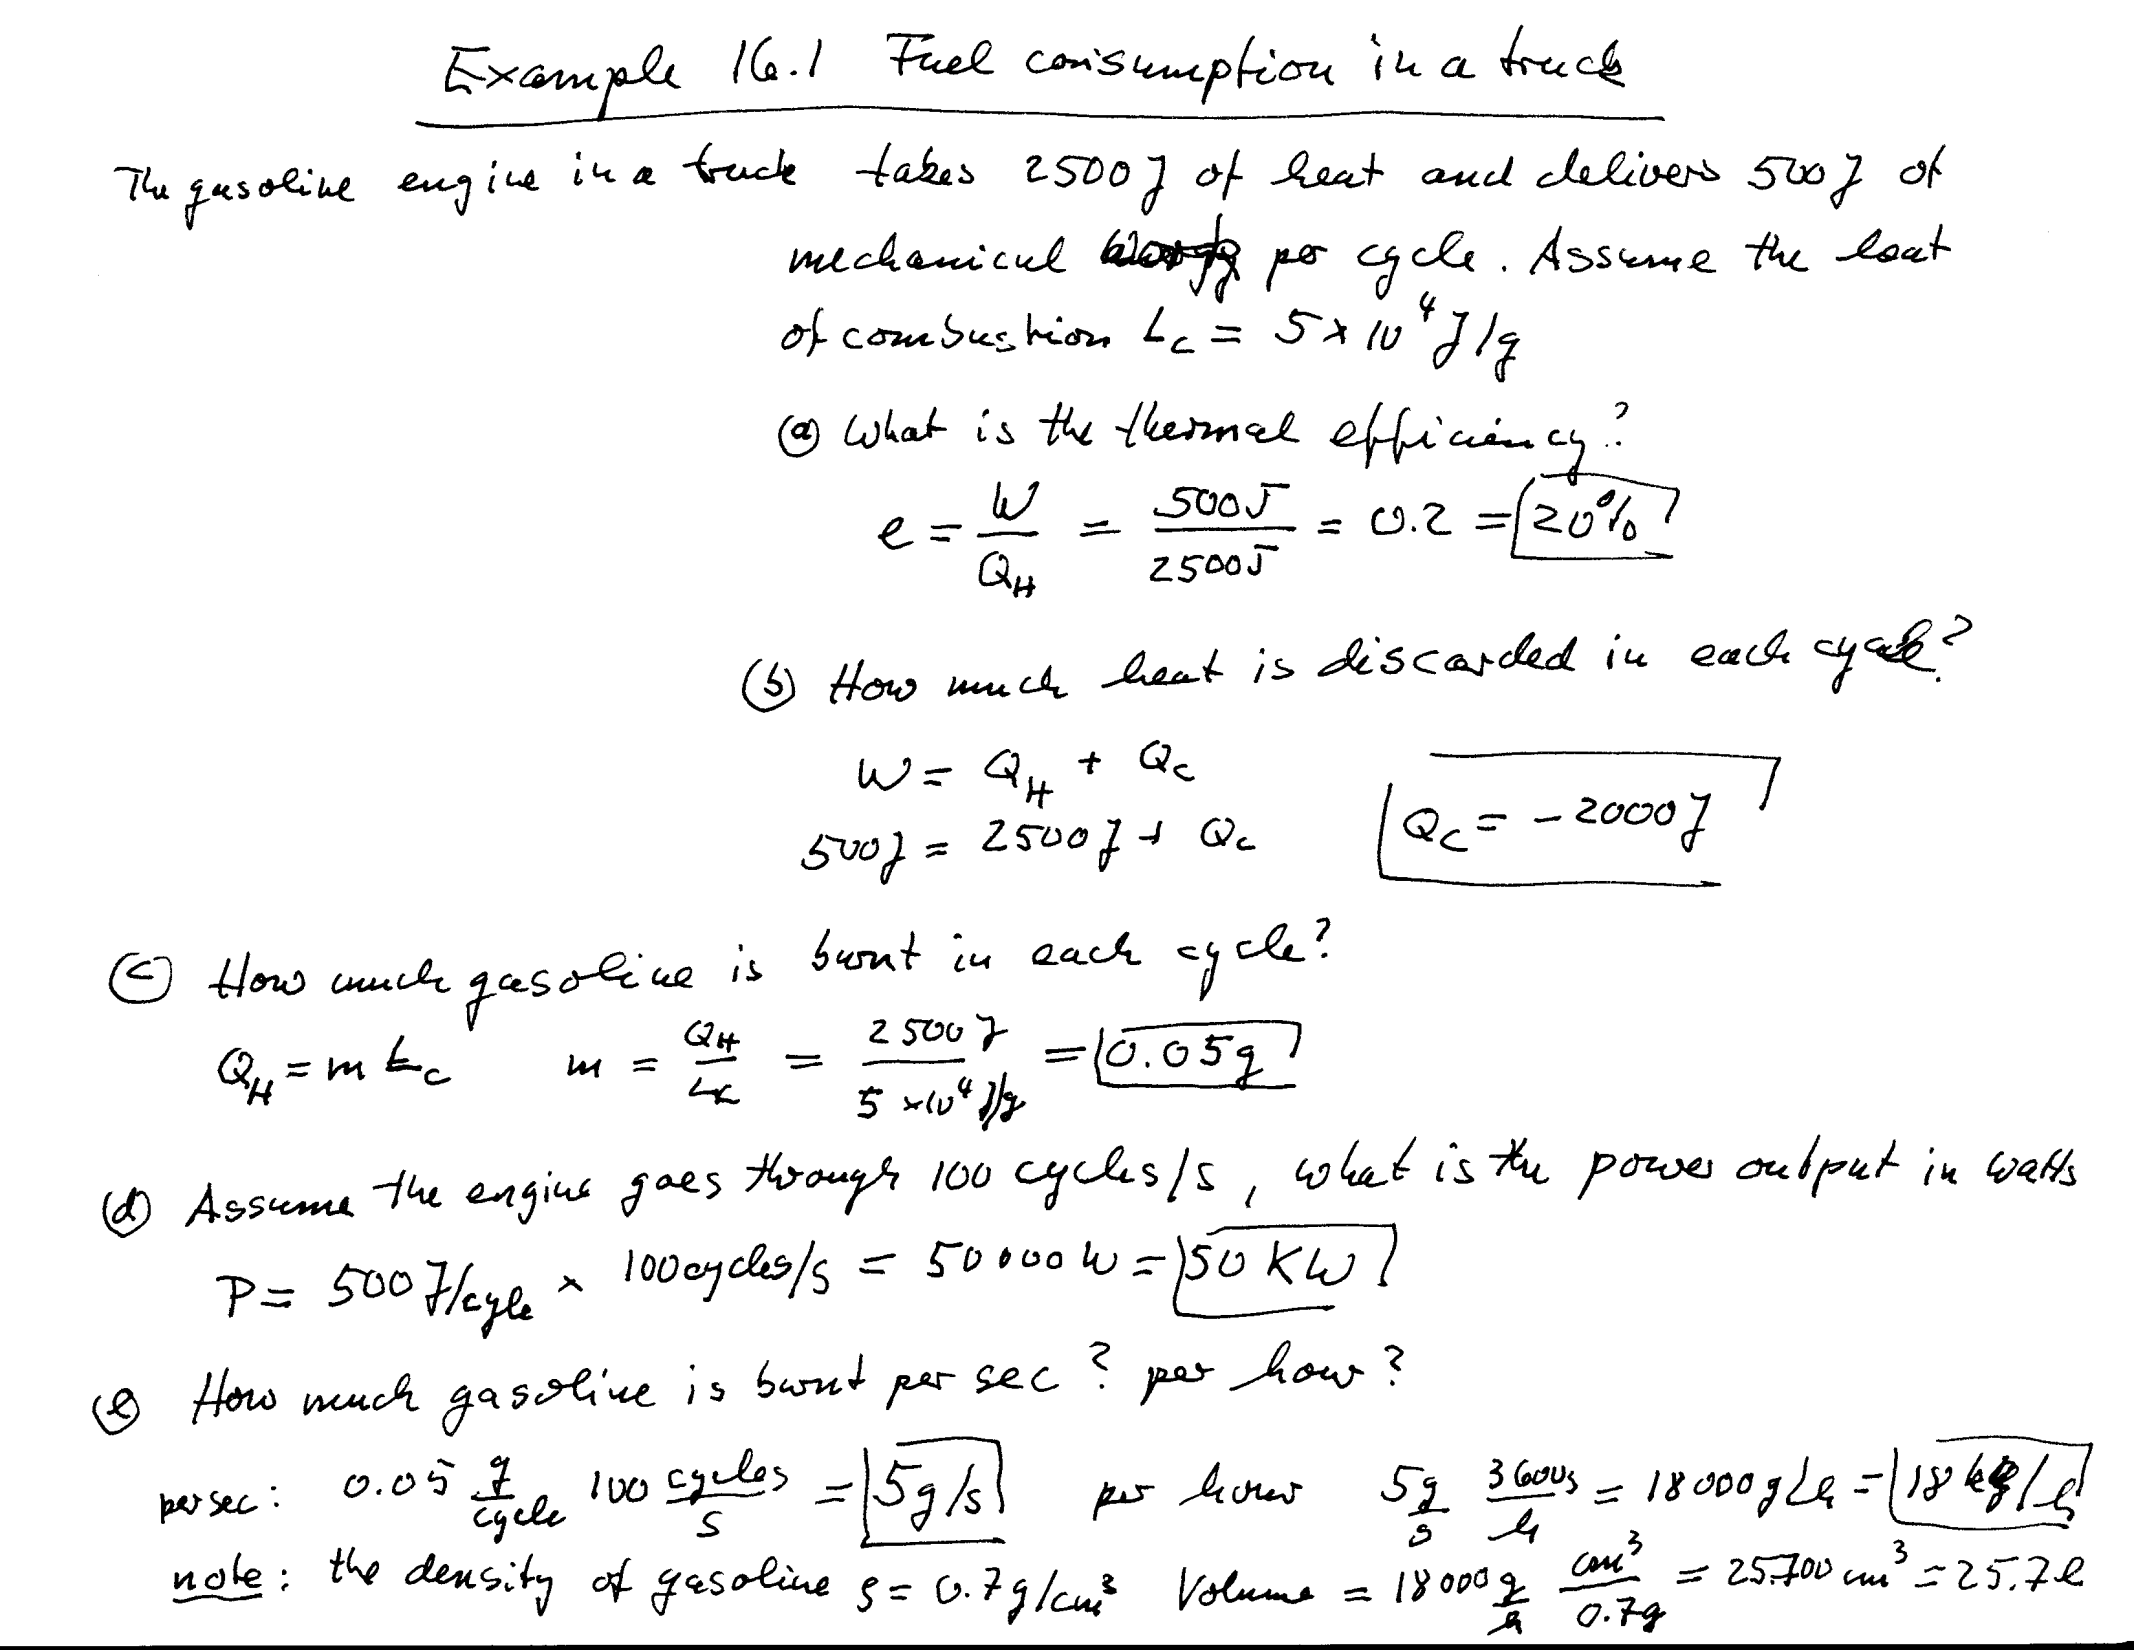 Example 16.1 Fuel consumption in a truck
The gasoline engine in a truck takes 2500 J of heat and delivers 500 J of
mechanical per cycle. Assume the heat
of combustion L_c = 5 × 10^4 J/g
(a) What is the thermal efficiency?
e = W/Q_H = 500J/2500J = 0.2 = 20%
(b) How much heat is discarded in each cycle?
W = Q_H + Q_C
500 J = 2500 J + Q_C Q_C = -2000 J
(c) How much gasoline is burnt in each cycle?
Q_H = m L_c m = Q_H/L_c = 2500 J/5 × 10^4 J/g = 0.05g
(d) Assume the engine goes through 100 cycles/s, what is the power output in watts
P = 500 J/cycle × 100 cycles/s = 50 000 W = 50 KW
(e) How much gasoline is burnt per sec? per hour?
per sec: 0.05 g/cycle 100 cycles/s = 5g/s per hour 5 g/s 3600s/h = 18 000 g/h = 18 kg/h
note: the density of gasoline ρ = 0.7 g/cm³ Volume = 18 000 g/h cm³/0.7g = 25.700 cm³ = 25.7 l